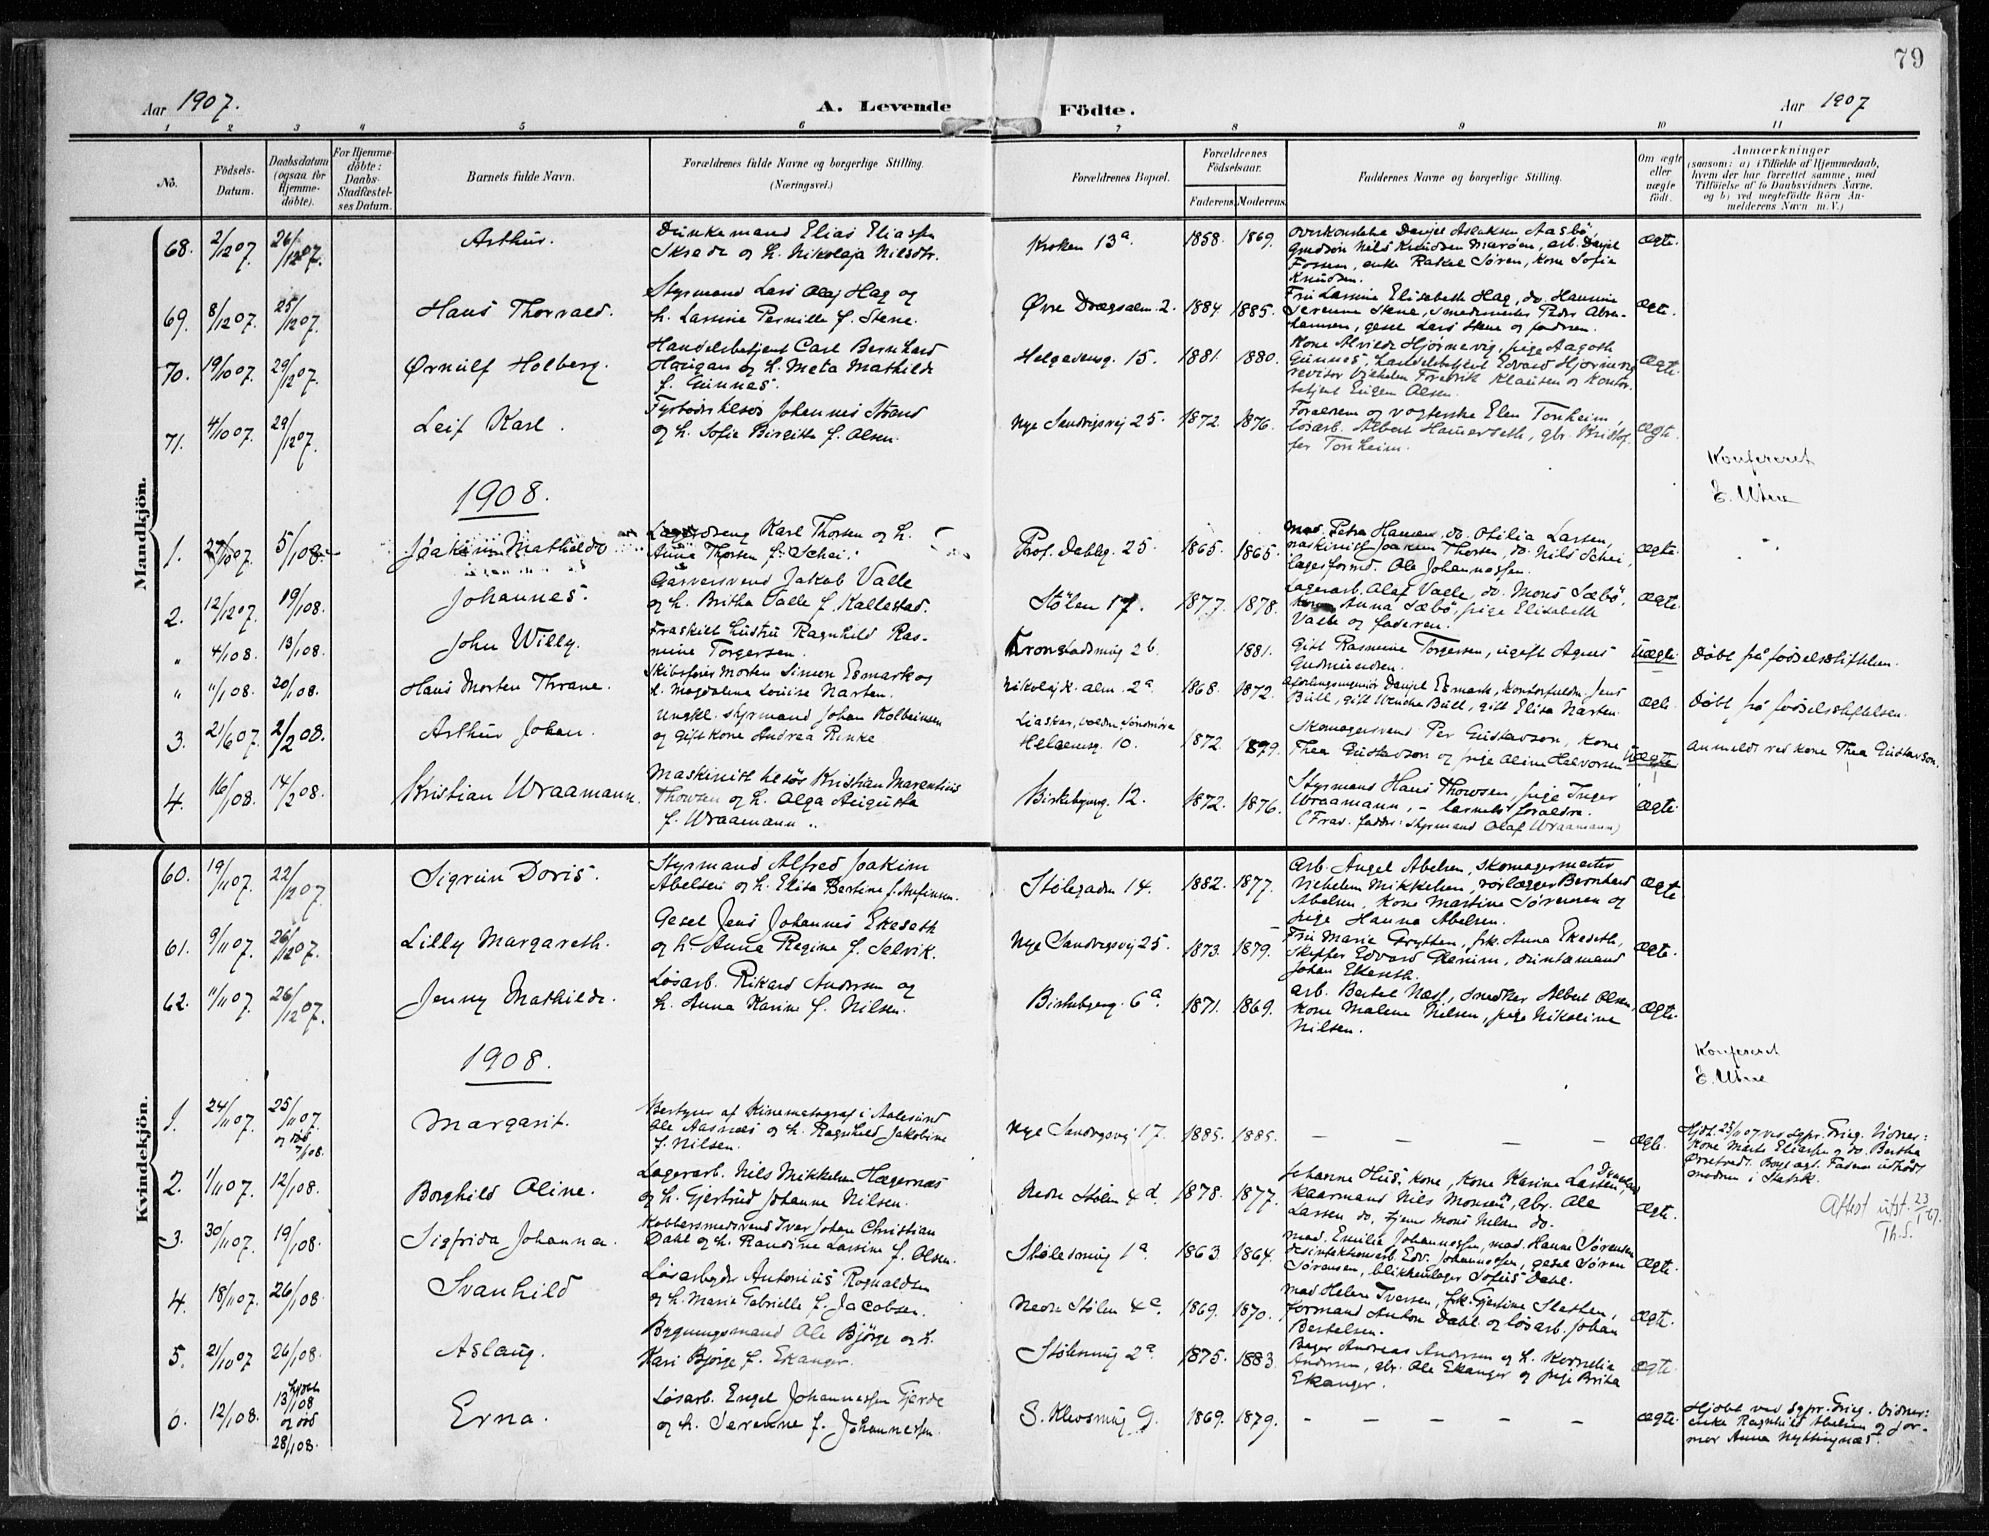 79
Aar 1907. A. Levende Födte. Aar 1907
1 2 3 4 5 6 7 8 9 10 11
No.
Födsels-
Datum.
Daabsdatum
(ogsaa for
Hjemme-
döbte).
For Hjemme-
döbte:
Daabs-
Stadfæstel-
ses Datum.
Barnets fulde Navn.
Forældrenes fulde Navne og borgerlige Stilling.
(Næringsvei.)
Forældrenes Bopæl.
Forældrenes
Födselsaar.
Faderens. Moderens.
Faddernes Navne og borgerlige Stilling.
Om ægte
eller
uægte
födt.
Anmærkninger
(saasom: a) i Tilfælde af Hjemmedaab,
hvem der har forrettet samme, med
Tilföielse af to Daabsvidners Navne,
og b) ved uægtefödte Börn An-
melderens Navn m. V.)
Mandkjön.
68. 2/12 07. 26/12 07. Arthur.
Elias Eliassen
og h. Nikolaja Nilsdtr.
Kroken 13a 1858. 1869.
overkonstabel Daniel Aslaksen Aasbö,
Nils Knudsen Maröen, arb. Daniel
Fossen, enke Rakel Sören, kone Sofie
Knudsen.
ægte.
69. 8/12 07. 25/12 07. Hans Thorvald.
Styrmand Lars Olaj Hag og
h. Lassine Pernille f. Stene.
Øvre Drægsalm. 2. 1884 1885.
Fru Lassine Elisabeth Hag, do. Hansine
Serenne Stene, smedmester Peder Abra-
hamsen, gesel Lars Stene og faderen.
ægte.
70. 19/10 07. 29/12 07. Ørnulf Holberg.
Handelsbetjent Carl Bernhard
Haugan og h. Meta Mathilde
f. Gunnas.
Helgesensg. 15. 1881. 1880.
Kone Alvilde Hjörnevig, pige Aagoth
Gunnes, handelsbetjent Edvard Hjörnevig
revisor Vilhelm Fredrik Klausen og kontor-
betjent Eugen Olsen.
ægte.
71. 4/10 07. 29/12 07. Leif Karl.
Johannes Strand
og h. Sofie Birgitte f. Olsen.
Nye Sandvigsvej 25. 1872. 1876.
Forældrene og vogterske Elen Tonheim,
lösarb. Albert Hamerseth, gbr. Kristof-
fer Tonheim.
ægte.
Konfereret
E. Utne
1908.
1. 27/10 07 5/1 08. Joakim Mathildo
Lagerdreng Karl Thorsen og h.
Anna Thorsen f. Schei.
Prof. Dahlsg. 25. 1865. 1865.
Mad. Petra Hansen, do. Otilia Larsen,
maskinist Joakim Thorsen, do. Nils Schei,
lagerformd. Ole Johannessen.
ægte.
2. 12/12 07. 19/1 08. Johannes.
Garversvend Jakob Valle
og h. Britha Valle f. Kallestad.
Stölen 17. 1877. 1878.
Lagerarb. Olaf Valle, do. Mons Sæbö,
kone Anna Sæbö, pige Elisabeth
Valle og faderen.
ægte.
" 4/1 08. 13/1 08. John Willy.
Fraskilt hustru Ragnhild Ras-
mine Torgersen.
Kronstadsmug 2b. 1881.
Gift Rasmine Torgersen, ugift Agnes
Gudmundsen.
Uægte. Döbt på födselsstiftelsen.
" 11/1 08. 20/1 08. Hans Morten Thrane.
Skibsförer Morten Simon Esmark og
h. Magdalena Louise Narten.
Nikolajk. alm. 2a. 1868. 1872.
Daniel Esmark, kontorfuldm. Jens
Bull, gift Wenche Bull, gift Elisa Narten.
ægte. Döbt på födselsstiftelsen.
3. 21/6 07. 2/2 08. Arthur Johan.
Ungkl. styrmand Johan Kolbeinsen
og gift kone Andrea Rinke
Liaskar, Volden Söndmöre
Helgesensg. 10. 1872. 1879.
Skomagersvend Per Gustavson, kone
Thea Gustavson og pige Aline Halvorsen
Uægte anmeldt ved kone Thea Gustavson.
4. 16/1 08. 14/2 08. Kristian Wraamann.
Maskinist Kristian Marentius
Thowsen og h. Olga Augusta
f. Wraamann.
Birkebeinerg. 12. 1872. 1876.
Styrmand Hans Thowsen, pige Inger
Wraamann, - barnets forældre.
(Frav. fadder: Styrmand Olaf Wraamann)
ægte.
Kvindekjön.
60. 19/11 07. 22/12 07. Sigrun Doris.
Styrmand Alfred Joakim
Abelsen og h. Elisa Bertine f. Anfinsen.
Stölegaden 14. 1882. 1877.
Arb. Angel Abelsen, skomagermester
Vilhelm Mikkelsen, rörlægger Bernhard
Abelsen, kone Martine Sörensen og
pige Hanna Abelsen.
ægte.
61. 9/11 07. 26/12 07. Lilly Margareth.
Gesel Jens Johannes Ekeseth
og h. Anna Regine f. Selvik.
Nye Sandvigsvej 25. 1873. 1879.
Fru Marie Grytten, frk. Anna Ekeseth,
Skipper Edvard
Johan Ekeseth.
ægte.
62. 11/11 07. 26/12 07. Jenny Mathilde.
Lösarb. Rikard Andersen og
h. Anna Karine f. Nilsen.
Birkebeinerg. 6a. 1871. 1869.
arb. Bertel Næss, snedker Albert Olsen,
kone Malene Nilsen, pige Nikoline
Nilsen.
ægte.
Konfereret
E. Utne
1908.
1. 24/11 07. 25/11 07. og Margarit.
Bestyrer af Kinematograf i Aalesund
Ole Aasnæs og h. Ragnhild Jakobine
f. Nilsen.
Nye Sandvigsvej 17. 1885. 1885.
– – – –
ægte.
Hjdt. 25/11 07 ved Frieg. Vidner:
Kone Marte Eliassen og do. Bertha
moderen i Statsk.
2. 1/11 07. 12/1 08. Borghild Oline.
Lagerarb. Nils Mikkelsen Hægernæs
og h. Gjertrud Johanne Nilsen.
Nedre Stölen 4d. 1878. 1877.
Johanne Hus, kone, kone Karine Larsen,
Nils Monsen, gbr. Ole
Larsen do, tjener Mons Nilsen do.
ægte.
Attest utst. 23/1 67.
Th.S.
3. 30/11 07. 19/1 08. Sigfrida Johanna.
Kobbersmedsvend Ivar Johan Christian
Dahl og h. Randine Lassine f. Olsen.
Stölesmug 1a 1863 1864.
Mad. Emilie Johannessen, mad. Hanna Sörensen
desinfektionsarb. Edv. Johannessen, gesel Sören
Sörensen, blikkenslager Sofus Dahl.
ægte.
4. 18/11 07. 26/1 08. Svanhild
Lösarbejder Antonius Rognaldsen
og h. Marie Gabrielle f. Jacobsen.
Nedre Stölen 4c. 1869. 1870.
Mad. Helene Iversen, frk. Gjertine Slethen,
formand Anton Dahl og lösarb. Johan
Bertelsen.
ægte.
5. 21/10 07. 26/1 08. Aslaug.
Bygningsmand Ole Björge og h.
Kari Björge f. Ekanger.
Stölesmug 2a. 1875. 1883.
Bager Andreas Andersen og h. Kornelia
Andersen, gbr. Ole Ekanger og pige Britha
Ekanger.
ægte.
6. 12/1 08. 13/1 08 og 28/1 08. Erna.
Lösarb. Engel Johannessen Gjerde
og h. Serenne f. Johannessen.
S. Klevsmug 9. 1869. 1879.
– – – –
ægte.
Hjdbt ved Frieg. Vidner:
enke Ragnhild Abelsen og Jor-
mor Anna Nyttingnæs.